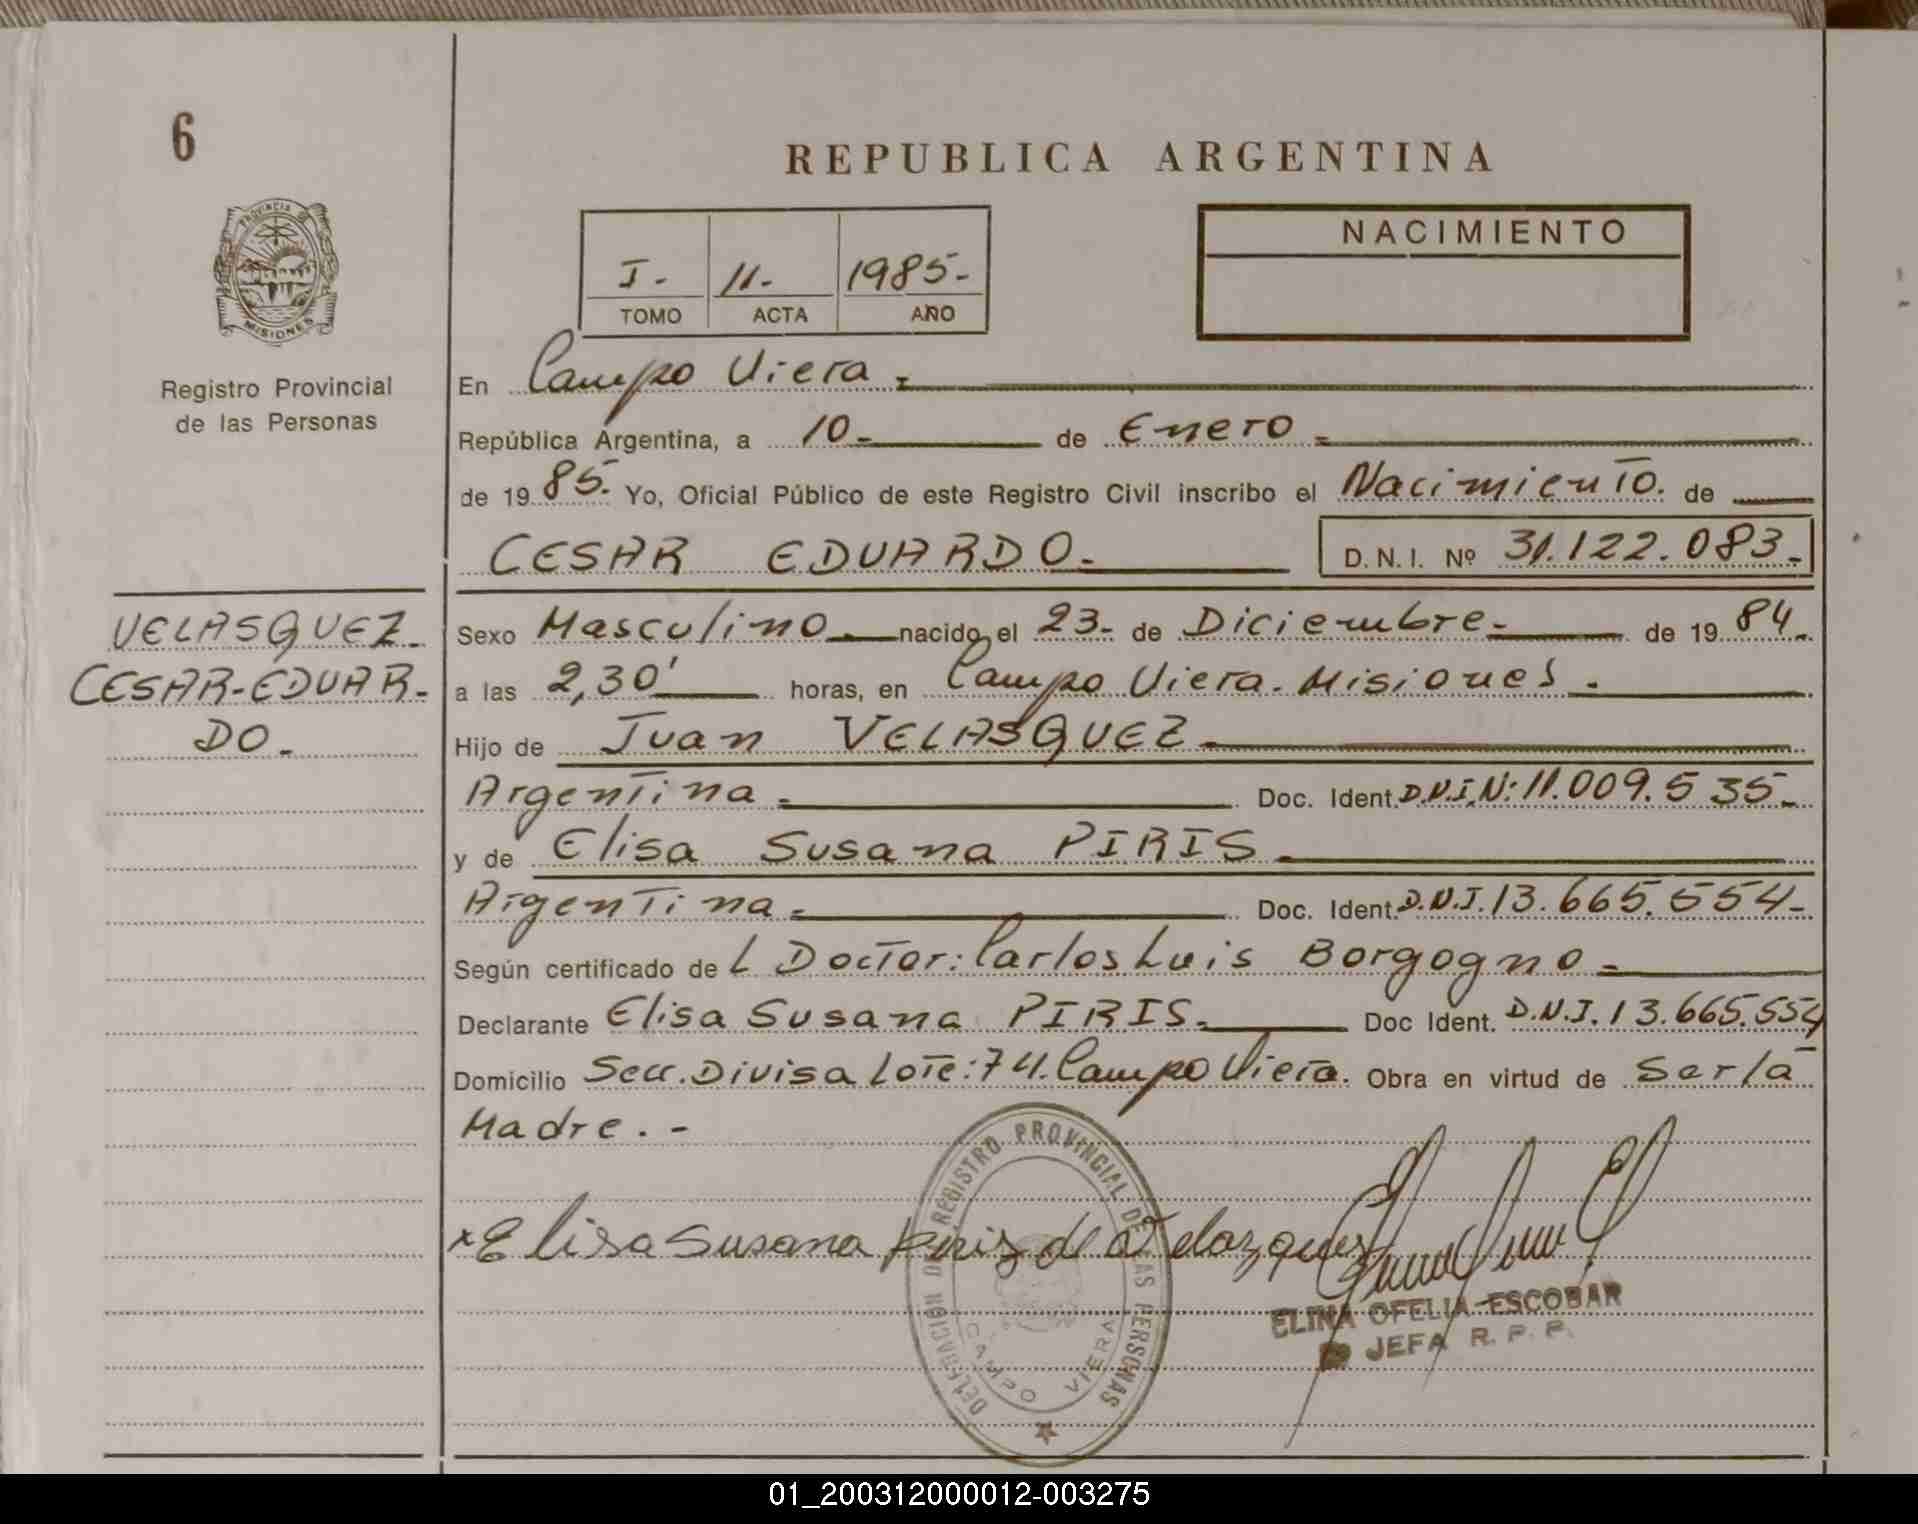 6
REPUBLICA ARGENTINA
PROVINCIA DE
MISIONES
Registro Provincial
de las Personas
NACIMIENTO
I.- 11.- 1985.-
TOMO ACTA AÑO
En Campo Viera.-
República Argentina, a 10.- de Enero.-
de 19 85. Yo, Oficial Público de este Registro Civil inscribo el Nacimiento. de
CESAR EDUARDO.- D.N.I. Nº 31.122.083.-
VELASQUEZ.
CESAR-EDUAR-
DO.-
Sexo Masculino.- nacido el 23.- de Diciembre.- de 19 84.-
a las 2,30' horas, en Campo Viera. Misiones.-
Hijo de Juan VELASQUEZ.-
Argentina.- Doc. Ident. D.N.I.N: 11.009.535.-
y de Elisa Susana PIRIS.-
Argentina.- Doc. Ident. D.N.I. 13.665.554-
Según certificado de L Doctor: Carlos Luis Borgogno.-
Declarante Elisa Susana PIRIS.- Doc Ident. D.N.I. 13.665.554
Domicilio Secc. Divisa Lote: 74. Campo Viera. Obra en virtud de Ser la
Madre.-
x Elisa Susana Piris de Velazquez
DELEGACION DEL REGISTRO PROVINCIAL DE LAS PERSONAS
CAMPO VIERA
ELINA OFELIA ESCOBAR
JEFA R. P. P.
01_200312000012-003275